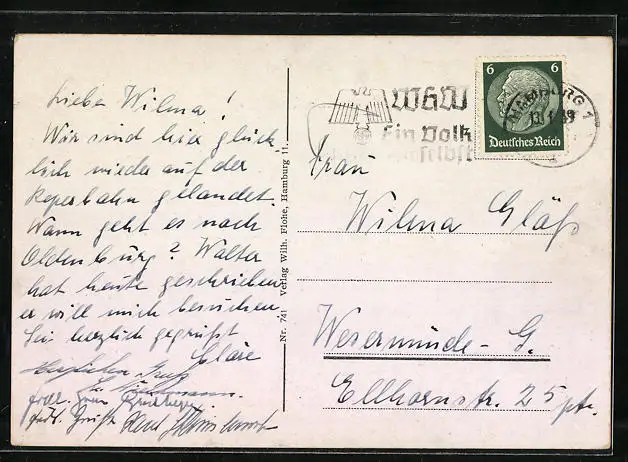 Liebe Wilma!
Wir sind hier glück-
lich wieder auf der
Reperbahn gelandet.
Wann geht es nach
Oldenburg? Walter
hat heute geschrieben,
er will mich besuchen.
Sei herzlich gegrüßt
Cläre
Herzlichen Gruß
Frau
Nr. 741 Verlag Wilh. Flohe, Hamburg 11.
WHW
Ein Volk
hilft sich selbst
6 6
Deutsches Reich
HAMBURG 1
Frau
Wilma Gläß
Wesermünde-G.
Ellhornstr. 25 ptr.